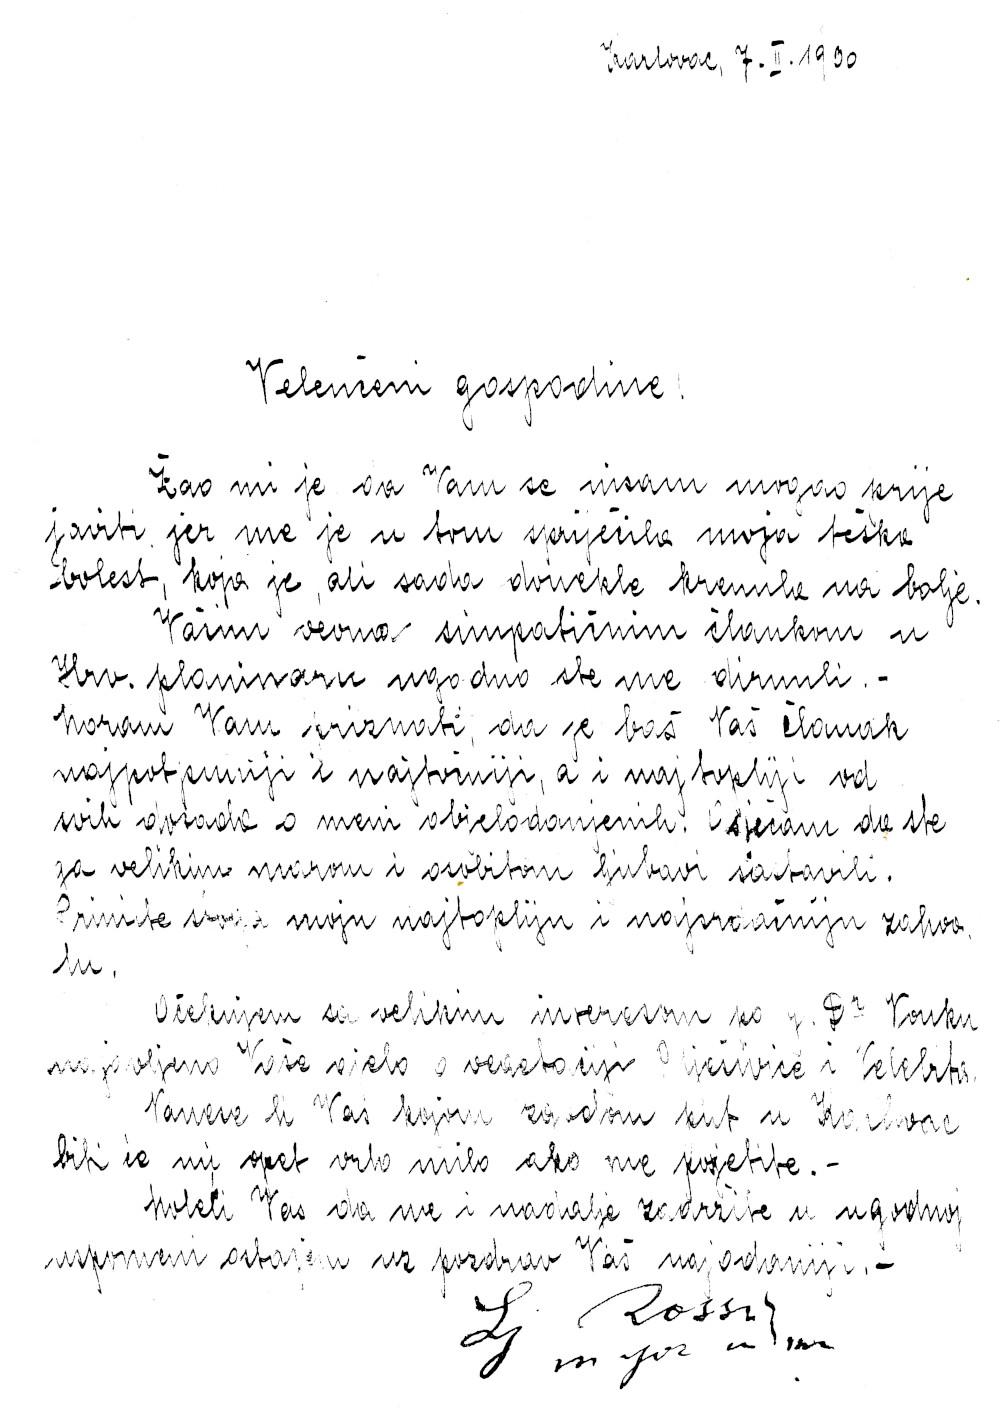 Karlovac, 7. II. 1930
Velenčeni gospodine!
Žao mi je da Vam se nisam mogao prije
javiti jer me je u tom spriječila moja teška
bolest, koja je, ali sada donekle krenula na bolje.
Vašim veoma simpatičnim člankom u
Hrv. planinaru ugodno ste me dirnuli. -
Moram Vam priznati, da je baš Vaš članak
najpotpuniji i najtočniji, a i najtopliji od
svih dosada o meni objelodanjenih. Osjećam da ste
ga velikim marom i osobitom ljubavi sastavili.
Primite stoga moju najtopliju i najsrdačniju zahva-
lu.
Očekujem sa velikim interesom po g. Dr Vouku
najavljeno Vaše djelo o vegetaciji Plješivice i Velebita.
Nanese li Vas kojom zgodom put u Karlovac
biti će mi opet vrlo milo ako me posjetite. -
Moleći Vas da me i nadalje zadržite u ugodnoj
uspomeni ostajem uz pozdrav Vaš najodaniji. -
Lj Rossi
major u m